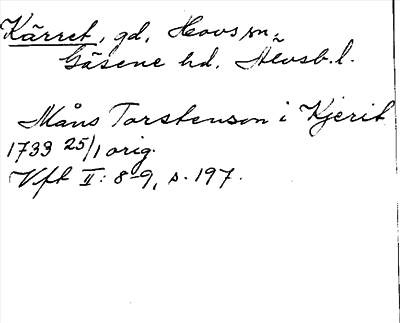 Kärret, gd, Hovs sn,
Gäsene hd, Älvsb. l.
Måns Torstenson i Kjerit
1733 25/1 orig.
Vft II: 8-9, s. 197.